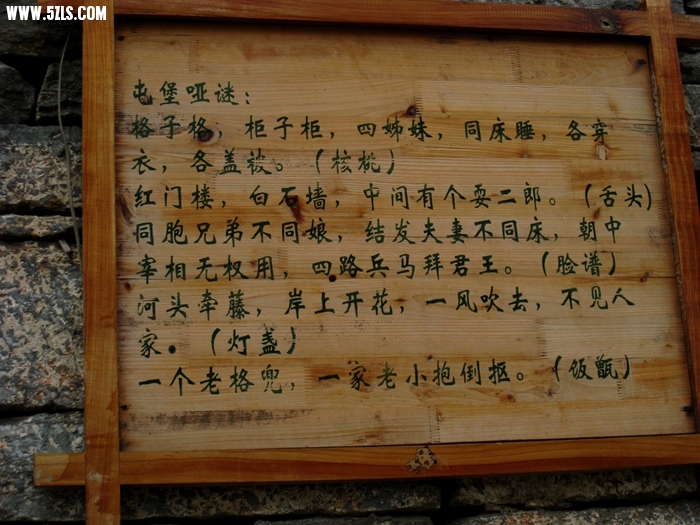 WWW.5ZLS.COM
屯堡哑谜：
格子格，柜子柜，四姊妹，同床睡，各穿
衣，各盖被。（核桃）
红门楼，白石墙，中间有个耍二郎。（舌头）
同胞兄弟不同娘，结发夫妻不同床，朝中
宰相无权用，四路兵马拜君王。（脸谱）
河头牵藤，岸上开花，一风吹去，不见人
家。（灯盏）
一个老格兜，一家老小抱倒抠。（饭甑）